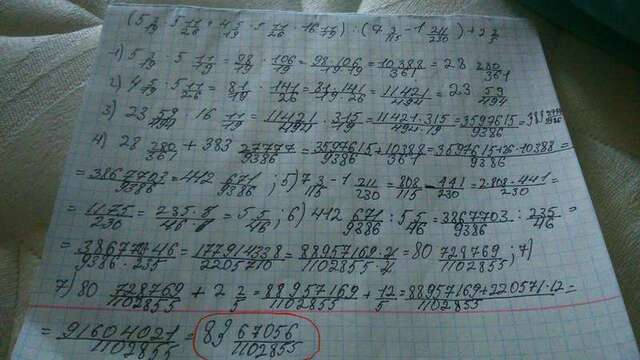 (5 3/19 · 5 11/26 + 4 5/19 · 5 11/26 · 16 11/19) : (7 3/115 - 1 211/230) + 2 2/5
1) 5 3/19 · 5 11/19 = 98/19 · 106/19 = 98·106/19·19 = 10388/361 = 28 280/361
2) 4 5/19 · 5 11/26 = 81/19 · 141/26 = 81·141/19·26 = 11421/494 = 23 59/494
3) 23 59/494 · 16 11/19 = 11421/494 · 315/19 = 11421·315/494·19 = 3597615/9386 = 383
4) 28 280/361 + 383 27777/9386 = 3597615/9386 + 10388/361 = 3597615+26·10388/9386 =
= 3867703/9386 = 412 671/9386 ; 5) 7 3/115 - 1 211/230 = 808/115 - 441/230 = 2·808-441/230 =
= 1175/230 = 235·5/46·5 = 5 5/46 ; 6) 412 671/9386 : 5 5/46 = 3867703/9386 : 235/46 =
= 3867703·46/9386·235 = 177914338/2205710 = 88957169·2/1102855·2 = 80 728769/1102855 ; 7)
7) 80 728769/1102855 + 2 2/5 = 88957169/1102855 + 12/5 = 88957169+220571·12/1102855 =
= 91604021/1102855 = 83 67056/1102855